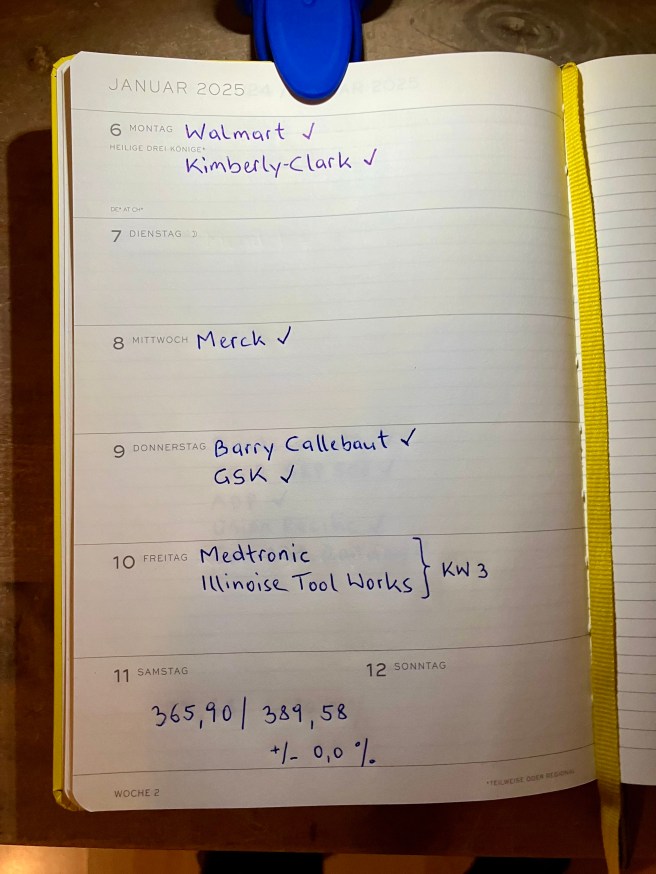 JANUAR 2025
6 MONTAG Walmart ✓
HEILIGE DREI KÖNIGE*
Kimberly-Clark ✓
DE* AT CH*
7 DIENSTAG ☽
8 MITTWOCH Merck ✓
9 DONNERSTAG Barry Callebaut ✓
GSK ✓
10 FREITAG Medtronic
Illinoise Tool Works } KW 3
11 SAMSTAG
12 SONNTAG
365,90 / 389,58
+/- 0,0 %.
WOCHE 2
*TEILWEISE ODER REGIONAL